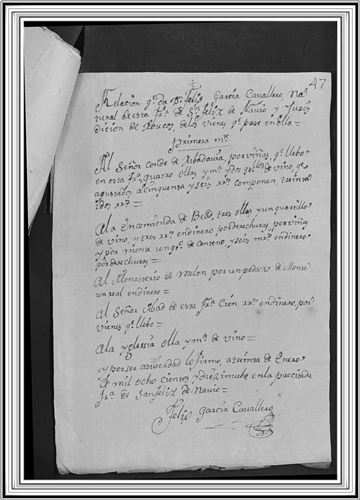 47
Relacion q.e da D.n Felis Garcia Cavallero, Na
tural de esta fra. de S.n felix de Navio y Juris
dicion de Roucos, de los vienes q.e pose en ella=
Primera m.te
Al Señor conde de Ribadavia, por viñas q.e llebo
en esta fra. quatro ollas y m.a dos de vino, q.e
ajustados a cinquenta y seis rr.s componen, treinta
dos rr.s=
Ala Encomienda de Beade, tres ollas y un quarillo
de vino, y tres rr.s endinero por derechuras, por viñas
y por monte un de Centeno, y seis mr.s endinero
por derechuras=
Al Monasterio de Melon por un pedazo de Monte
un real endinero=
Al Señor Abad de esta fra. Cien rr.s endinero, por
vienes q.e llebo=
Ala yglesia olla y m.a de vino=
y por ser asi lo firmo, a treinta de Enero
de mil ocho cientos y diez inuebe en la precitada
fra. de San felix de Navio=
Felis Garcia Cavallero